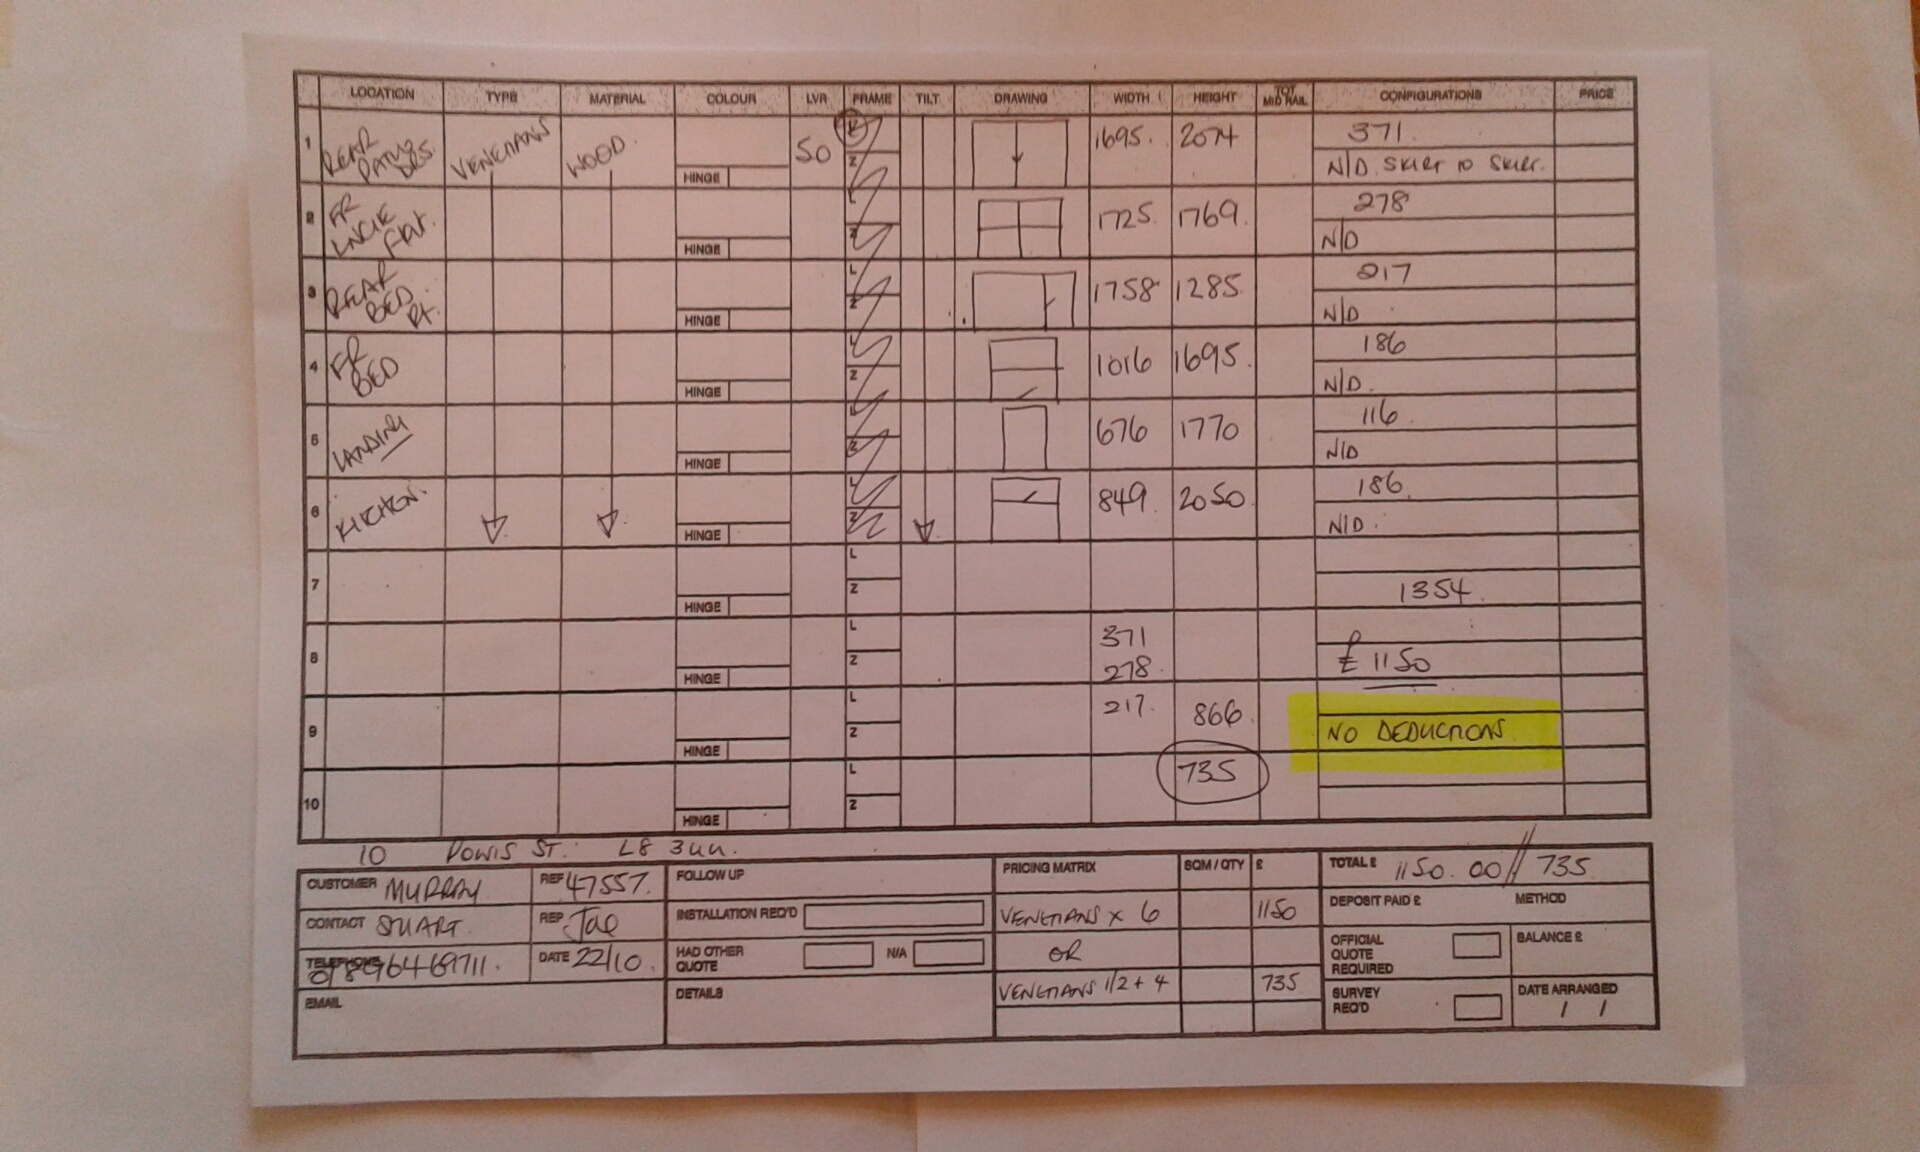 LOCATION TYPE MATERIAL COLOUR LVR FRAME TILT DRAWING WIDTH HEIGHT TOT MID RAIL CONFIGURATIONS PRICE
1 REAR PATIO DRS. VENETIANS WOOD. HINGE 50 Z 1695. 2074 371.
N/D. SKIRT TO SKIRT.
2 FR UNCLE FRNT. HINGE L Z 1725. 1769. 278
N/D
3 REAR BED RT. HINGE L Z 1758 1285. 217
N/D
4 FR BED HINGE L Z 1016 1695. 186
N/D.
5 LANDING HINGE L Z 676 1770 116
N/D
6 KITCHEN. HINGE L Z 849. 2050. 186.
N/D.
7 HINGE L Z 1354.
8 HINGE L Z 371
278. £ 1150
9 HINGE L Z 217. 866. NO DEDUCTIONS
10 HINGE L Z 735
10 POWIS ST. L8
CUSTOMER MURRAY REF 47557.
CONTACT STUART REP Jae
TELEPHONE 07896469711. DATE 22/10.
EMAIL
FOLLOW UP
INSTALLATION REQ'D
HAD OTHER QUOTE N/A
DETAILS
PRICING MATRIX SQM / QTY £
VENETIANS x 6 1150
OR
VENETIANS 1/2 + 4 735
TOTAL £ 1150.00 // 735
DEPOSIT PAID £ METHOD
OFFICIAL QUOTE REQUIRED BALANCE £
SURVEY REQ'D DATE ARRANGED
/ /